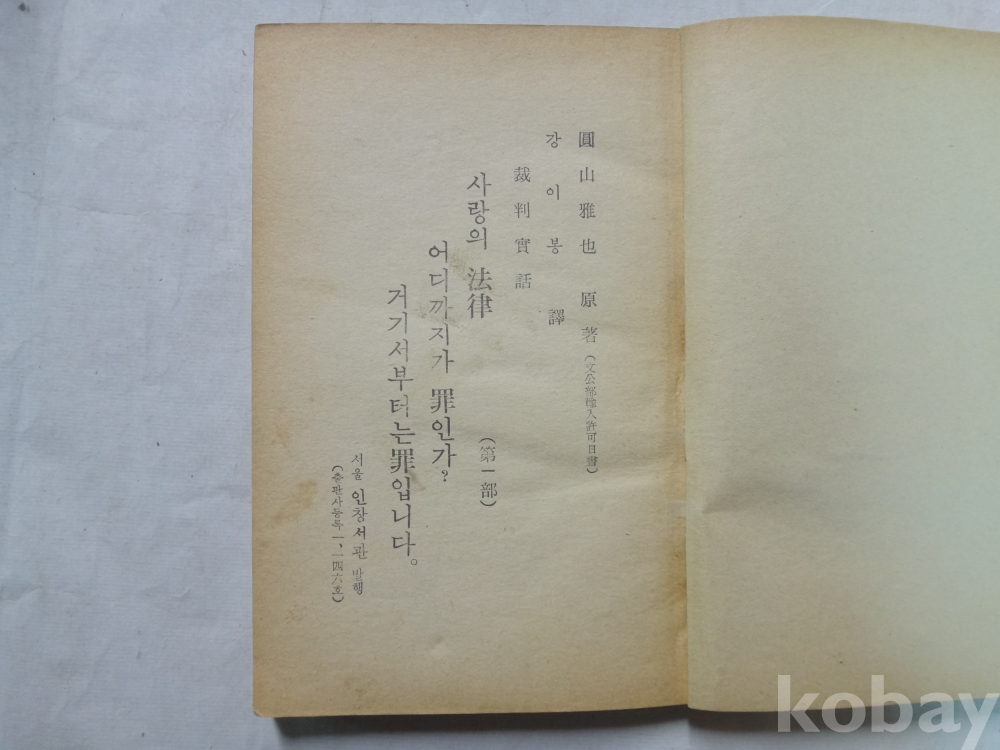 圓山雅也 原著(文公部輸入許可日書)
강이봉 譯
裁判實話
사랑의 法律 (第一部)
어디까지가 罪인가?
거기서부터는 罪입니다。
서울 인창서관 발행
(출판사등록 一、一四六호)
kobay